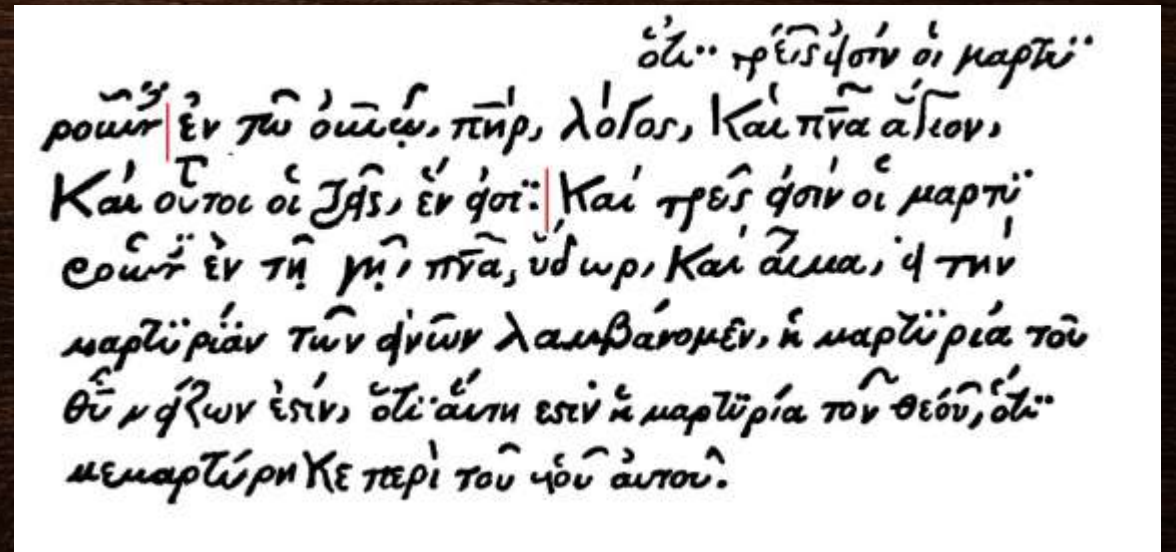 ὅτι τρεῖς εἰσὶν οἱ μαρτυ
ροῦντες ἐν τῷ οὐρανῷ, πηρ, λόγος, Καὶ πνα ἅγιον,
Καὶ οὗτοι οἱ τρεῖς, ἕν εἰσι: Καὶ τρεῖς εἰσὶν οἱ μαρτυ
ροῦντες ἐν τῇ γῇ, πνα, ὕδωρ, Καὶ αἷμα, εἰ τὴν
μαρτυρίαν τῶν ανων λαμβάνομεν, ἡ μαρτυρία τοῦ
θυ μείζων ἐστίν, ὅτι αὕτη ἐστὶν ἡ μαρτυρία τοῦ θεοῦ, ὅτι
μεμαρτύρηκε περὶ τοῦ υἱοῦ αὐτοῦ.